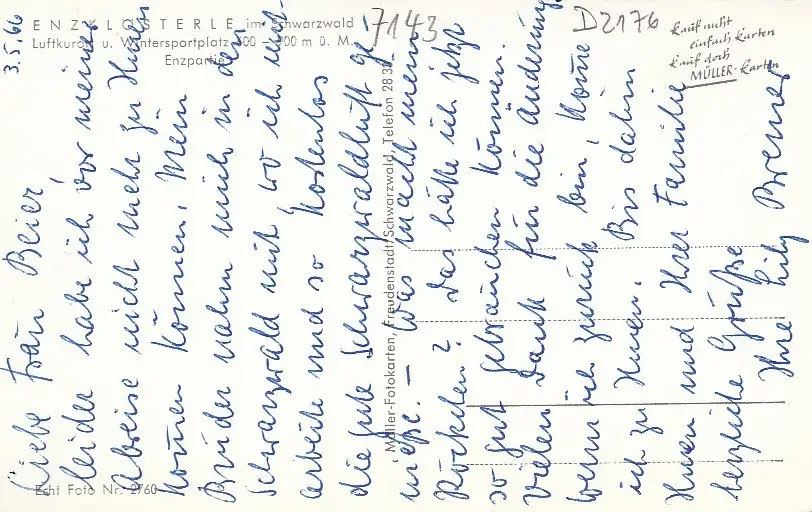 ENZKLÖSTERLE im Schwarzwald
Luftkurort u. Wintersportplatz 600 – 900 m ü. M.
Enzpartie
7143
D2176
Kauf nicht
einfach Karten
Kauf doch
MÜLLER-Karten
Müller-Fotokarten, Freudenstadt/Schwarzwald, Telefon 2830
Echt Foto Nr. 2760
3.5.66
Liebe Frau Beier,
leider habe ich vor meiner
Abreise nicht mehr zu Ihnen
kommen können. Mein
Bruder nahm mich in den
Schwarzwald mit, wo ich nicht
arbeite und so kostenlos
die gute Schwarzwaldluft ge-
nieße. – Was macht mein
Röckchen? Das hätte ich jetzt
so gut gebrauchen können.
Vielen Dank für die Änderung.
Wenn ich zurück bin, komme
ich zu Ihnen. Bis dahin
Ihnen und Ihrer Familie
herzliche Grüße
Ihre Bremer